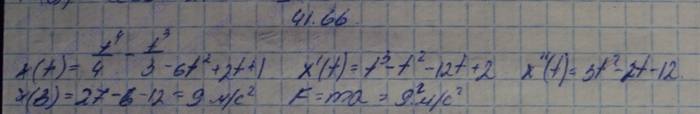 41.66.
x(t) = t⁴/4 - t³/3 - 6t² + 2t + 1 x'(t) = t³ - t² - 12t + 2 x''(t) = 3t² - 2t - 12.
x(3) = 27 - 6 - 12 = 9 м/с² F = ma = 9² м/с²